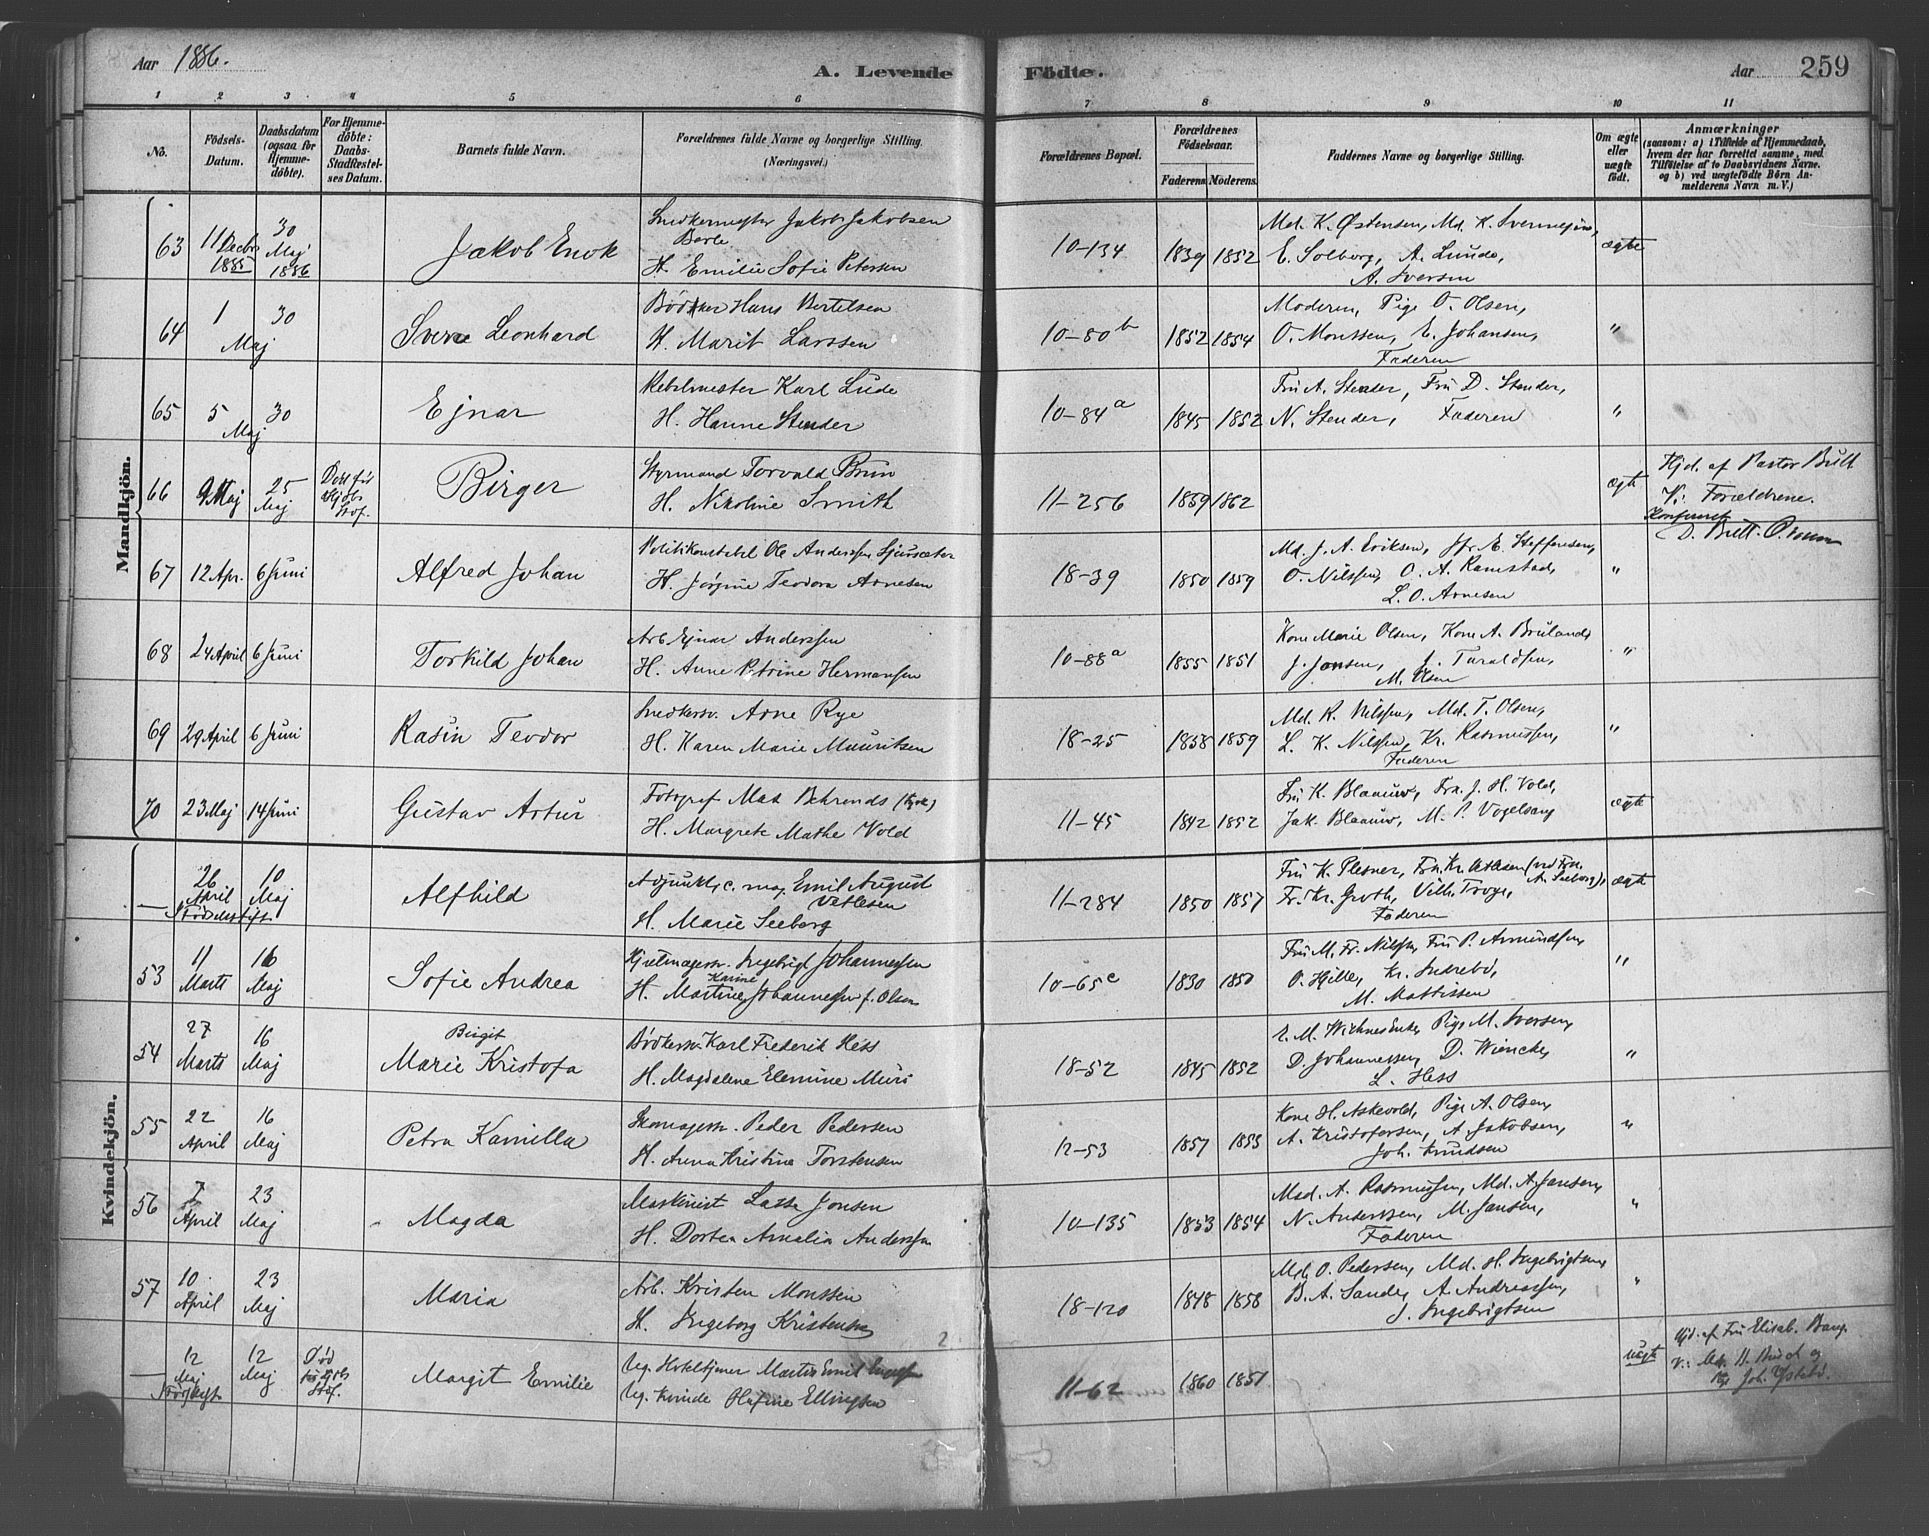 Aar 1886.
A. Levende Födte.
Aar 259
1 2 3 4 5 6 7 8 9 10 11
No.
Födsels-Datum.
Daabsdatum (ogsaa for Hjemme-döbte).
For Hjemme-döbte: Daabs-Stadfæstel-ses Datum.
Barnets fulde Navn.
Forældrenes fulde Navne og borgerlige Stilling. (Næringsvei.)
Forældrenes Bopæl.
Forældrenes Födselsaar.
Faderens. Moderens.
Faddernes Navne og borgerlige Stilling.
Om ægte eller uægte födt.
Anmærkninger
(saasom: a) i Tilfælde af Hjemmedaab, hvem der har forrettet samme, med Tilföielse af to Daabsvidners Navne. og b) ved uægtefödte Börn Anmelderens Navn m. V.)
Mandkjön.
63 11 Decbr 1885 30 Maj 1886 Jakob Enok Snedkermester Jakob Jakobsen
H. Emilie Sofie Petersen 10-134 1839 1852 Md. K. Østensen, Md. K.
E. Solberg, A. Lunde, ægte
A. Iversen
64 1 Maj 30 Sverre Leonhard Bødker Hans Bertelsen
H. Marit Larssen 10-80 b 1852 1854 Moderen, Pige O. Olsen,
O. Monssen, E. Johansen, "
Faderen
65 5 Maj 30 Ejnar Rebslmester Karl Lude
H. Hanne Stender 10-84 a 1845 1852 Fru A. Stender, Fru D. Stender,
N. Stender, Faderen "
66 9 Maj 25 Maj Birger Styrmand Torvald Brun
H. Nikoline Smith 11-256 1859 1862 ægte Hjd. af Pastor Bull
V: Forældrene.
Konfereret
67 12 Apr. 6 Juni Alfred Johan Politikonstabel Ole Anderssen Sjursæter
H. Jørgine Teodora Arnesen 18-39 1850 1859 Md. J. A. Eriksen, E. Steffensen,
O. Nilssen, O. A. Ramstad, "
L. O. Arnesen
68 24 April 6 Juni Torkild Johan Arb Ejnar Anderssen
H. Anne Petrine Hermansen 10-88 a 1855 1851 Kone Marie Olsen, Kone A. Bruland,
J. Jansen, J. Taraldsen, "
M. Olsen
69 29 April 6 Juni Rasin Teodor Snedkersv. Arne Rye
H. Karen Marie Mauritsen 18-25 1858 1859 Md. R. Nilssen, Md. T. Olsen,
L. K. Nilssen, Kr. Rasmussen, "
Faderen
70 23 Maj 14 Juni Gustav Artur Fotograf Max Behrends
H. Margrete Mathea Vold 11-45 1842 1852 Fru K. Blaauw, Frk. J. H. Vold,
Jak. Blaauw, M. P. Vogelsang ægte
Kvindekjön.
— 26 April 10 Maj Alfhild Adjunkt, c. mag Emil August
Vatlesen
Fødselsstift. H. Marie Seeberg 11-284 1850 1857 Fru K. Plesner,
Fr. Kr. Groth, Vilh. Troye, ægte
Faderen
53 11 Marts 16 Maj Sofie Andrea Hjulmagersv. Ingebrigt Johannessen
Karine
H. Martine Johannessen f. Olsen 10-65 c 1830 1850 Fru M. Fr. Nilssen, Fru P. Amundsen,
O. Hjelle, Kr. Indrebø, "
M. Mattissen
54 27 Marts 16 Maj Birgit
Marie Kristofa Bødkersv. Karl Frederik Hess
H. Magdalene Elemine Müri 18-52 1845 1852 Pige M. Iversen,
D. Johannessen, D. Wiencke, "
L. Hess
55 22 April 16 Maj Petra Kamilla Skomagersv. Peder Pedersen
H. Anna Kristine Torstensen 12-53 1857 1855 Kone H. Askevold, Pige A. Olsen,
A. Kristofersen, A. Jakobsen, "
Joh. Knudsen
56 7 April 23 Maj Magda Maskinist Lasse Jonsen
H. Dortea Amalia Anderssen 10-135 1853 1854 Mad. A. Rasmussen, Md. A. Jansen,
N. Anderssen, M. Jansen, "
Faderen
57 10 April 23 Maj Maria Arb. Kristen Monssen
H. Ingeborg Kristensen 18-120 1848 1858 Md. O. Pedersen, Md. H. Ingebrigtsen,
B. A. Sande, A. Andreassen, "
J. Ingebrigtsen
— 12 Maj 12 Maj Død Margit Emilie Ug. Hoteltjener Martin Emil
Ug. Kvinde Olefine Ellingsen 11-62 1860 1851 uægte Hjd. af Fru Elisab. Bang.
Joh. Ystebø.